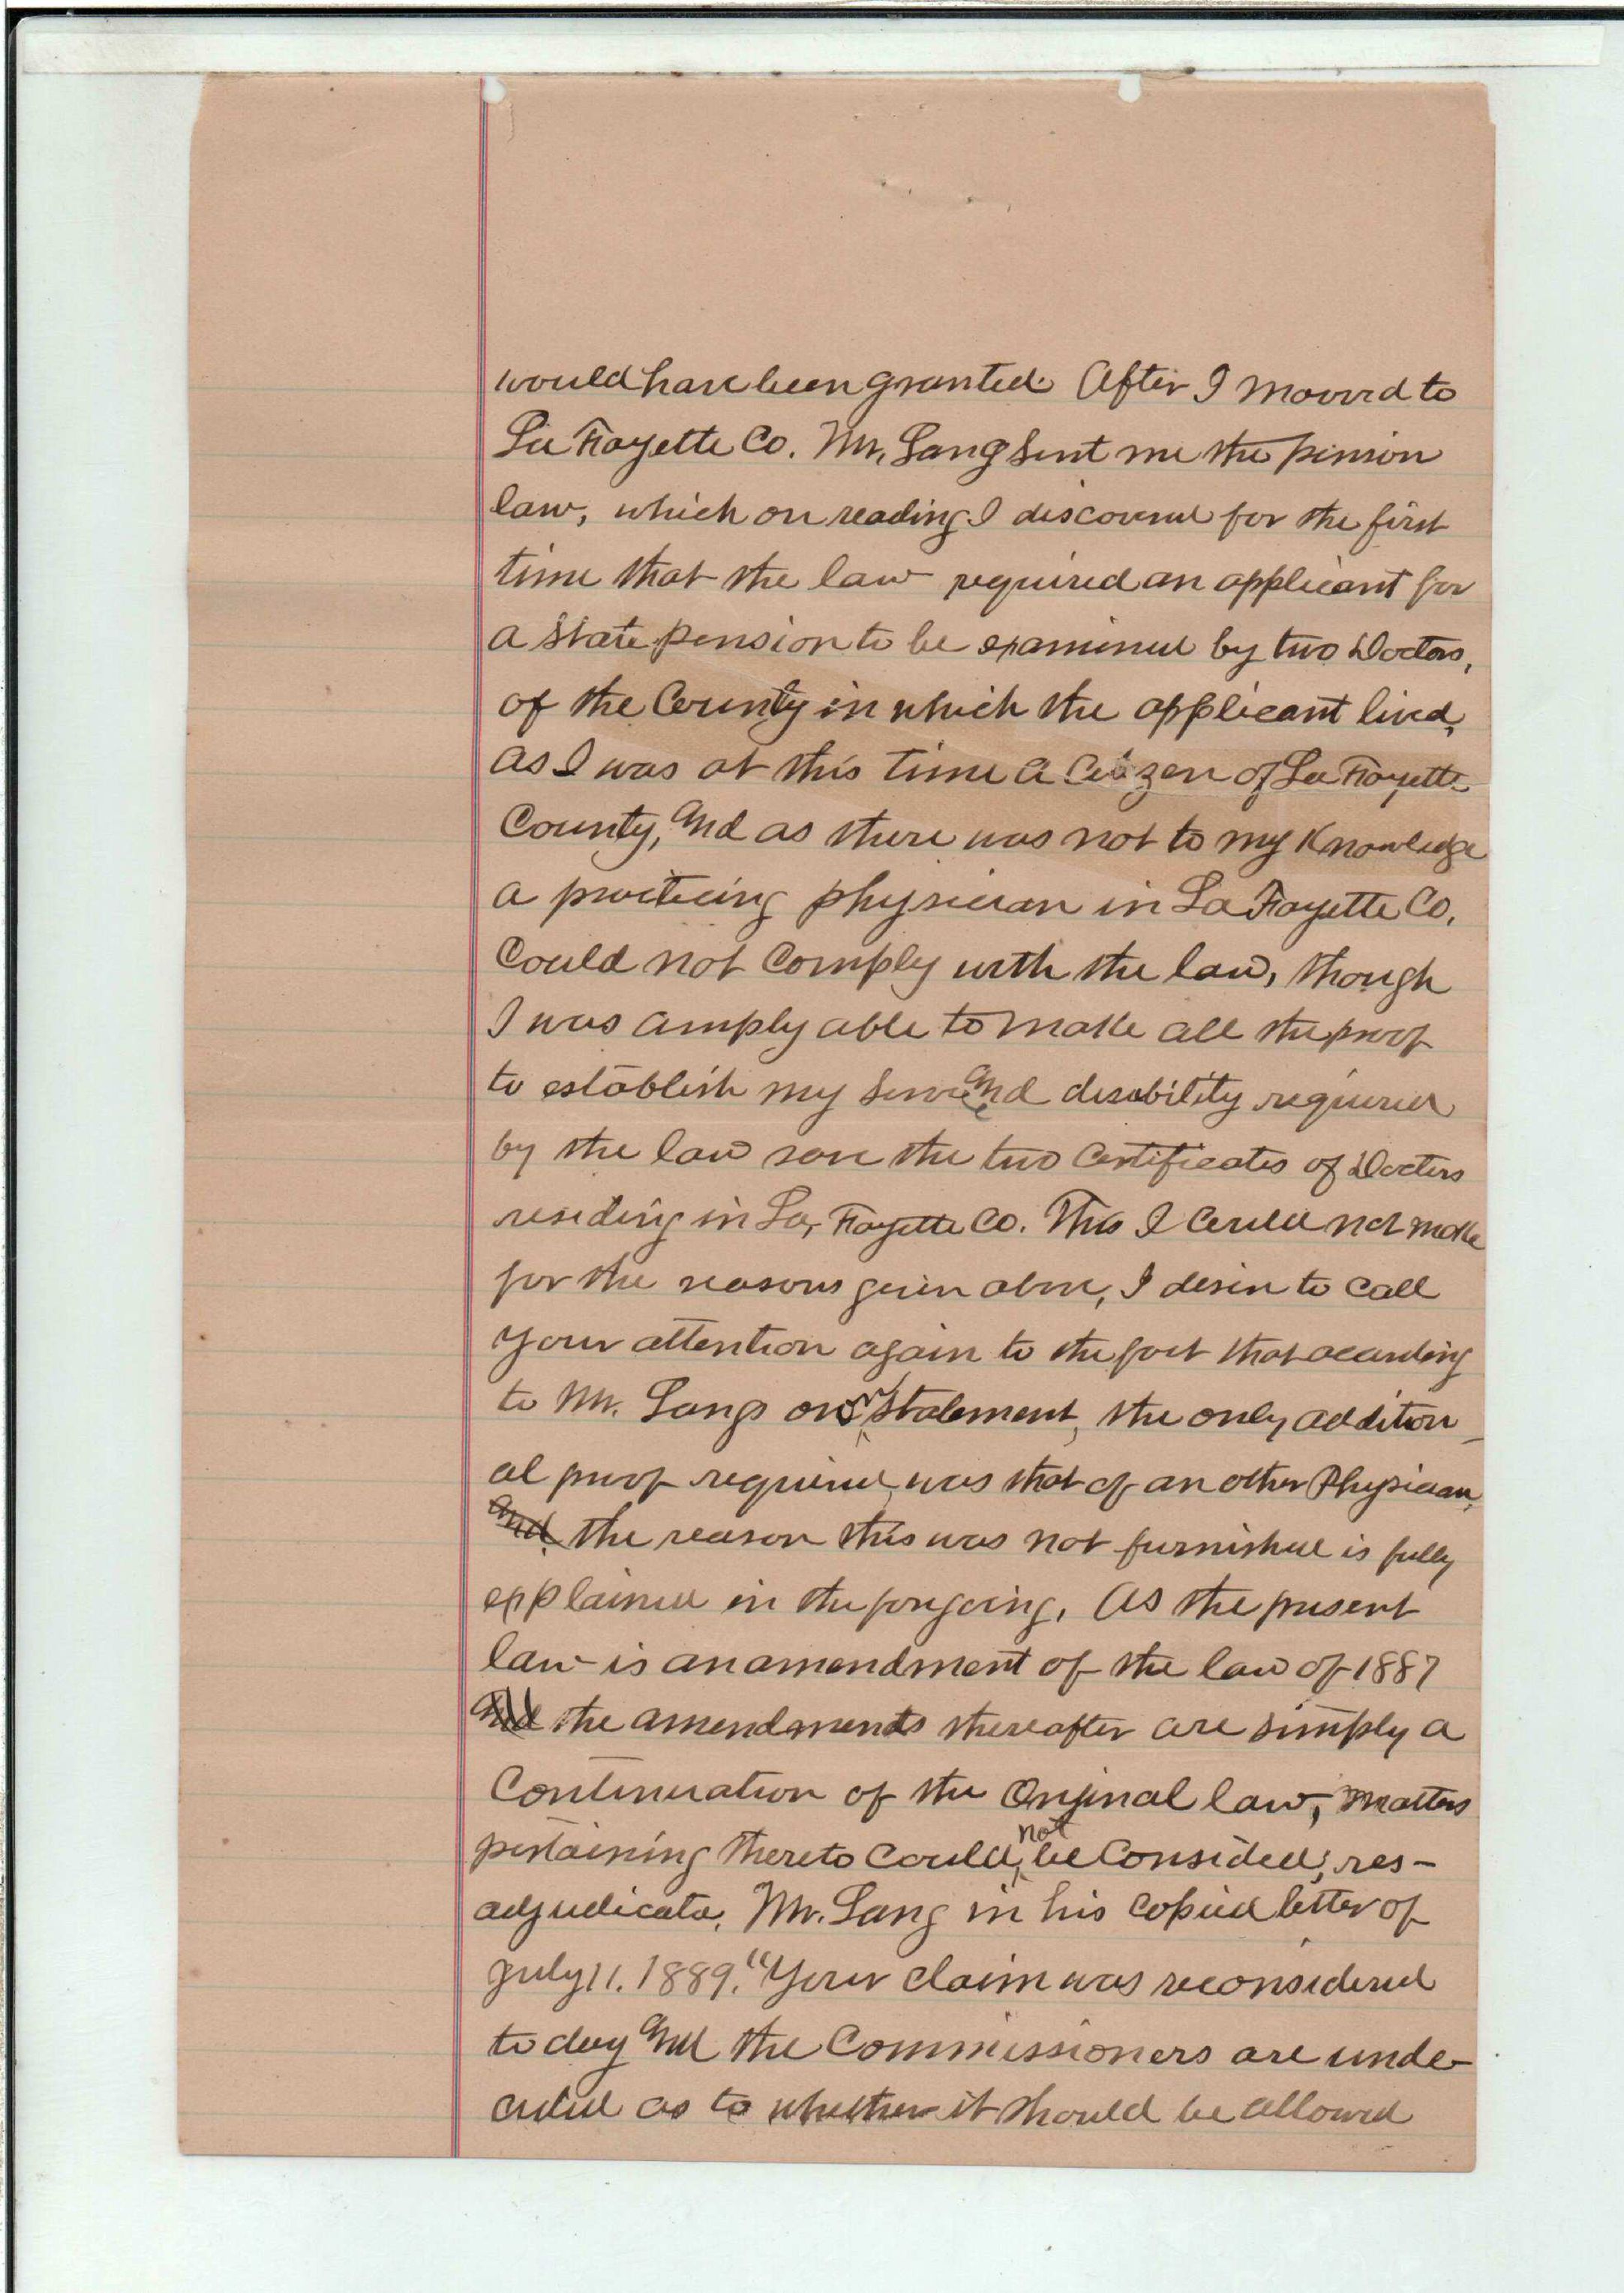 would have been granted. After I moovd to
La Fayette Co. Mr. Lang sent me the pinsion
law, which on reading I discovered for the first
time that the law required an applicant for
a State pension to be examined by two Doctors,
of the County in which the applicant lived,
as I was at this time a Citizen of La Fayette
County, and as there was not to my Knowledge
a practicing physician in La Fayette Co.
Could not Comply with the law, though
I was amply able to make all the proof
to establish my service and disability required
by the law save the two Certificates of Doctors
residing in La, Fayette Co. This I Could not make
for the reasons given above, I desire to Call
your attention again to the fact that according
to Mr. Langs own Statement, the only addition-
al proof required, was that of an other Physician,
and the reason this was not furnished is fully
explained in the forgoing. As the present
law is an amendment of the law of 1887
and the amendments thereafter are simply a
Continuation of the Original law, matters
pertaining thereto Could not be Consided, res-
adjudicata. Mr. Lang in his Copied letter of
July 11. 1889. "Your Claim was reconsidered
to day and the Commissioners are unde-
cided as to whether it should be allowed